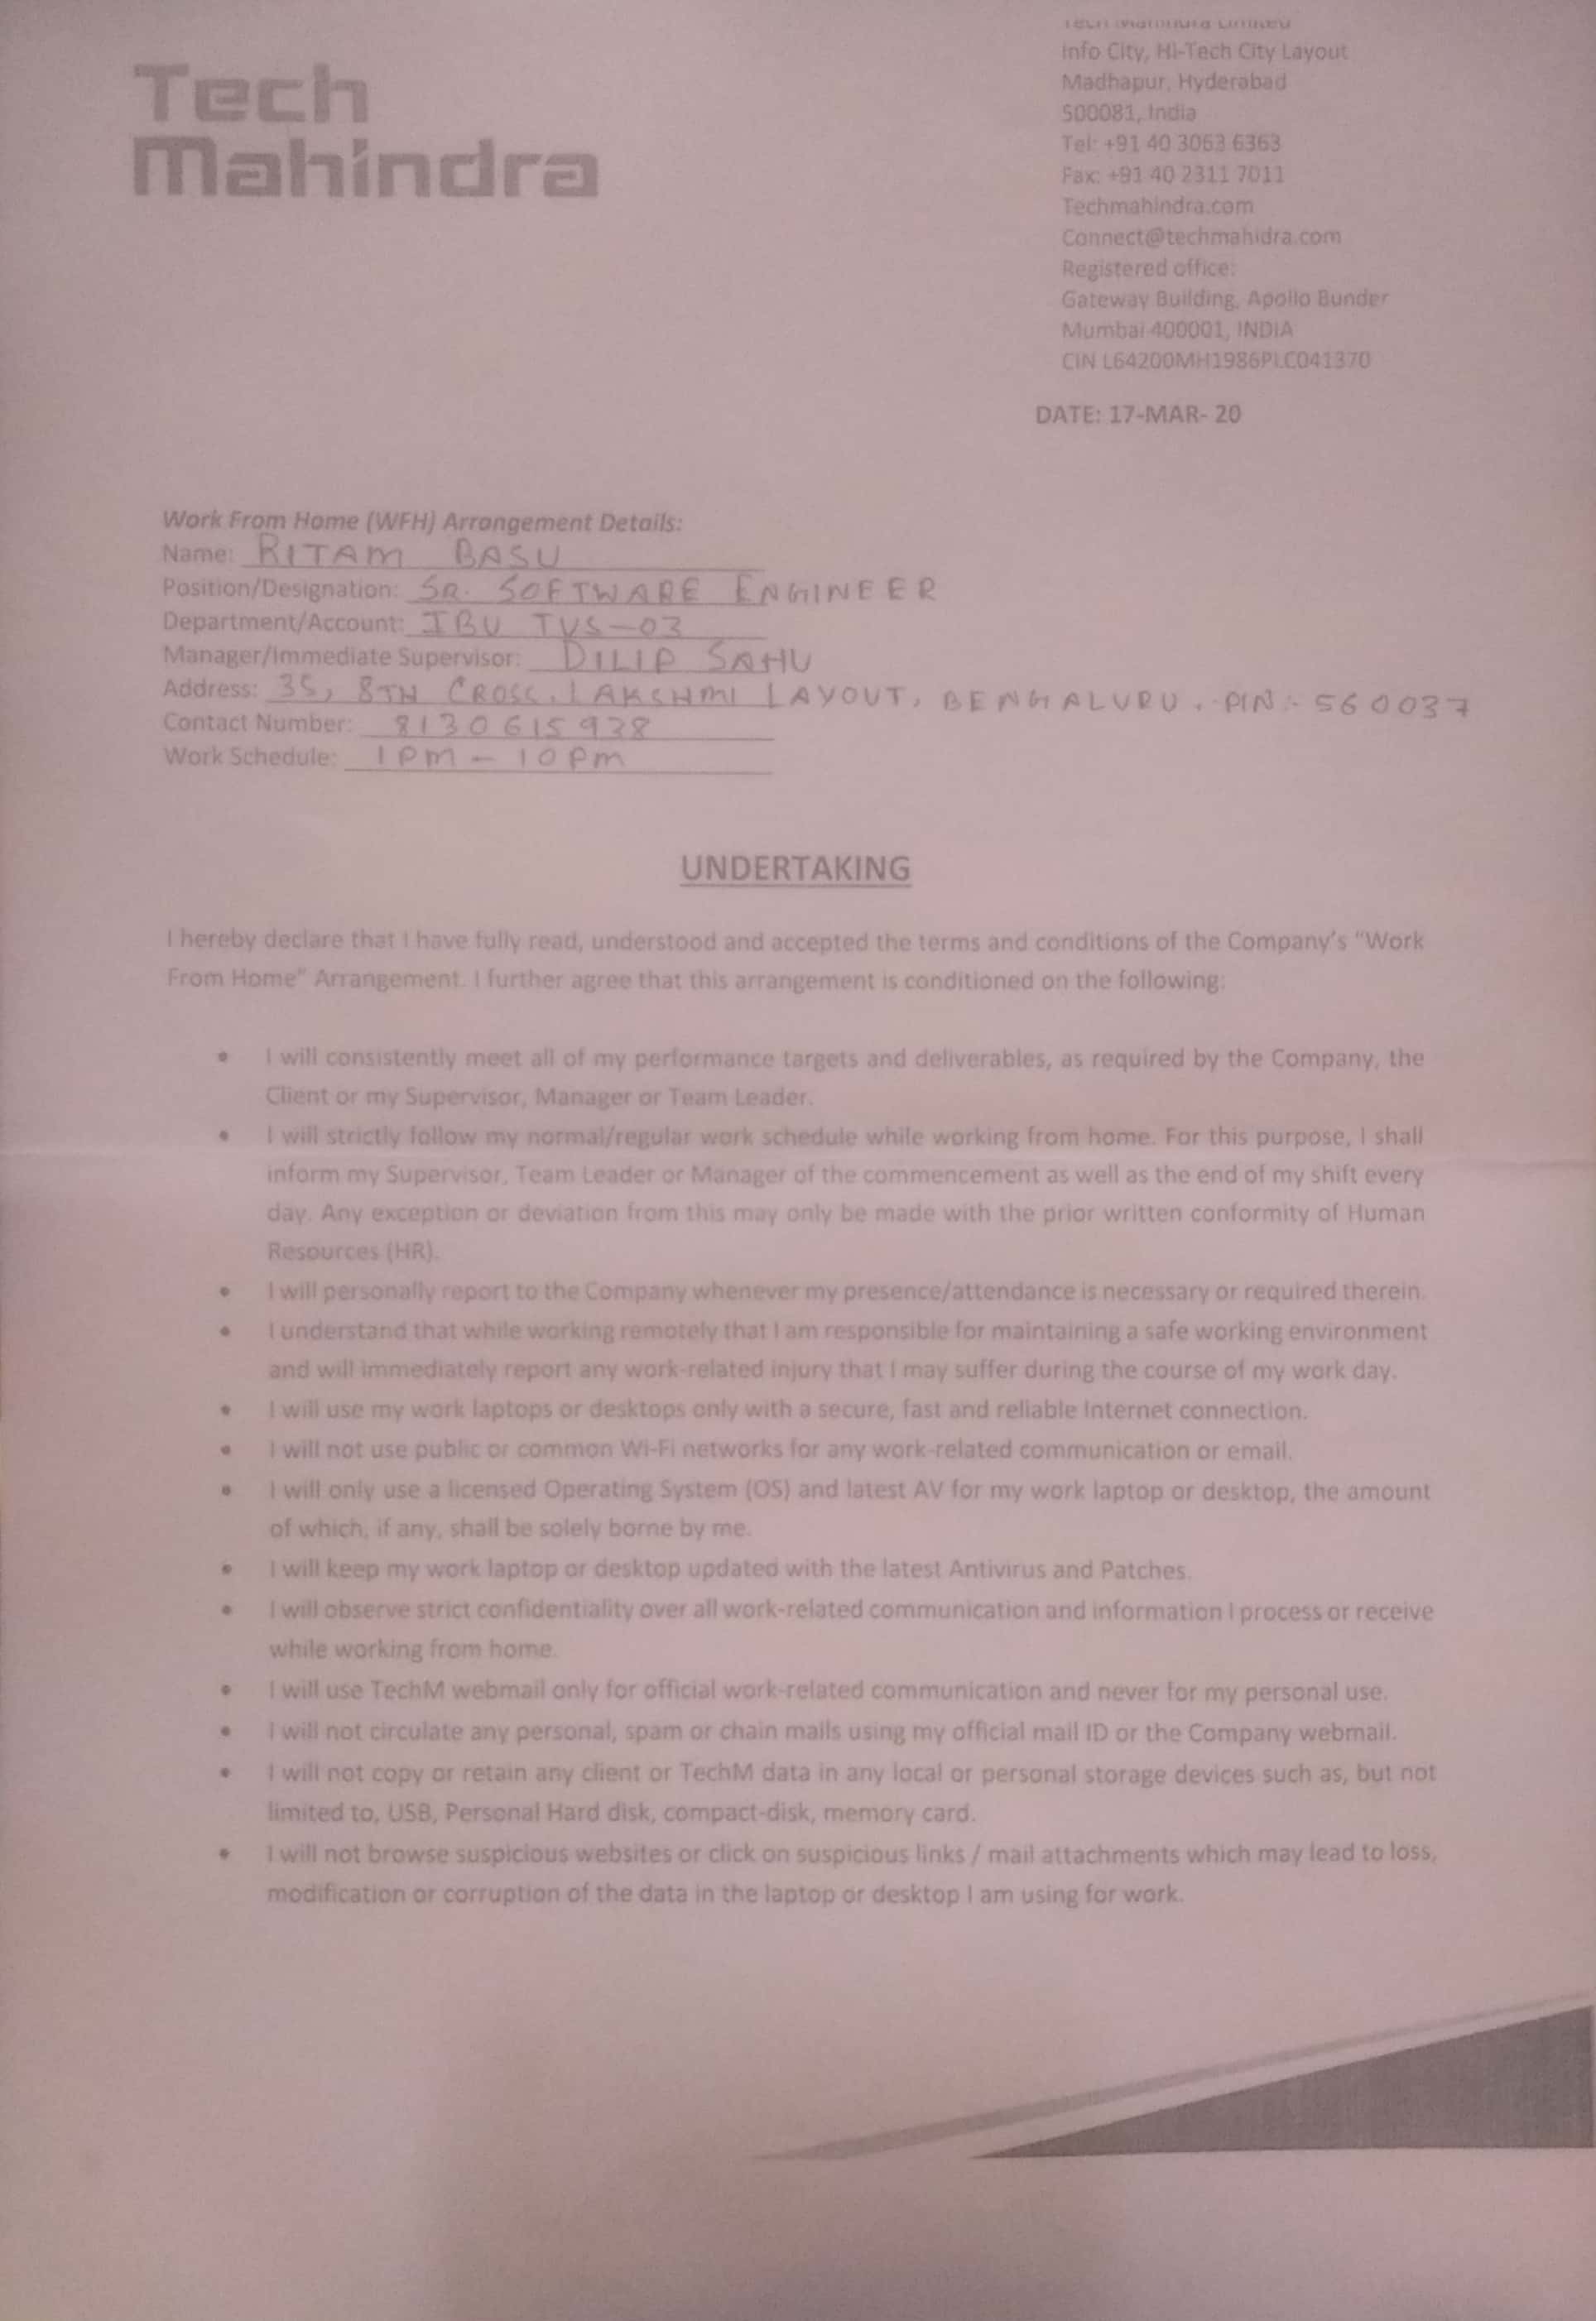 Tech
Mahindra
Tech Mahindra Limited
Info City, Hi-Tech City Layout
Madhapur, Hyderabad
500081, India
Tel: +91 40 3063 6363
Fax: +91 40 2311 7011
Techmahindra.com
Connect@techmahidra.com
Registered office:
Gateway Building, Apollo Bunder
Mumbai 400001, INDIA
CIN L64200MH1986PLC041370
DATE: 17-MAR- 20
Work From Home (WFH) Arrangement Details:
Name: RITAM BASU
Position/Designation: SR. SOFTWARE ENGINEER
Department/Account: IBU TVS-03
Manager/Immediate Supervisor: DILIP SAHU
Address: 35, 8TH CROSS, LAKSHMI LAYOUT, BENGALURU. PIN:- 560037
Contact Number: 8130615938
Work Schedule: 1PM - 10PM
UNDERTAKING
I hereby declare that I have fully read, understood and accepted the terms and conditions of the Company's "Work
From Home" Arrangement. I further agree that this arrangement is conditioned on the following:
• I will consistently meet all of my performance targets and deliverables, as required by the Company, the
Client or my Supervisor, Manager or Team Leader.
• I will strictly follow my normal/regular work schedule while working from home. For this purpose, I shall
inform my Supervisor, Team Leader or Manager of the commencement as well as the end of my shift every
day. Any exception or deviation from this may only be made with the prior written conformity of Human
Resources (HR).
• I will personally report to the Company whenever my presence/attendance is necessary or required therein.
• I understand that while working remotely that I am responsible for maintaining a safe working environment
and will immediately report any work-related injury that I may suffer during the course of my work day.
• I will use my work laptops or desktops only with a secure, fast and reliable Internet connection.
• I will not use public or common Wi-Fi networks for any work-related communication or email.
• I will only use a licensed Operating System (OS) and latest AV for my work laptop or desktop, the amount
of which, if any, shall be solely borne by me.
• I will keep my work laptop or desktop updated with the latest Antivirus and Patches.
• I will observe strict confidentiality over all work-related communication and information I process or receive
while working from home.
• I will use TechM webmail only for official work-related communication and never for my personal use.
• I will not circulate any personal, spam or chain mails using my official mail ID or the Company webmail.
• I will not copy or retain any client or TechM data in any local or personal storage devices such as, but not
limited to, USB, Personal Hard disk, compact-disk, memory card.
• I will not browse suspicious websites or click on suspicious links / mail attachments which may lead to loss,
modification or corruption of the data in the laptop or desktop I am using for work.